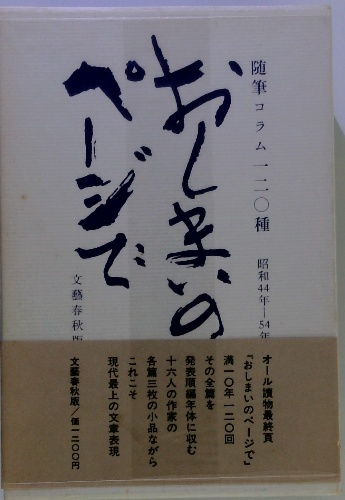 随筆コラム一二〇種
昭和44年―54年
おしまいの
ページで
文藝春秋版
オール讀物最終頁
『おしまいのページで』
満一〇年一二〇回
その全篇を
発表順編年体に収む
十六人の作家の
各篇三枚の小品ながら
これこそ
現代最上の文章表現
文藝春秋版/価一二〇〇円